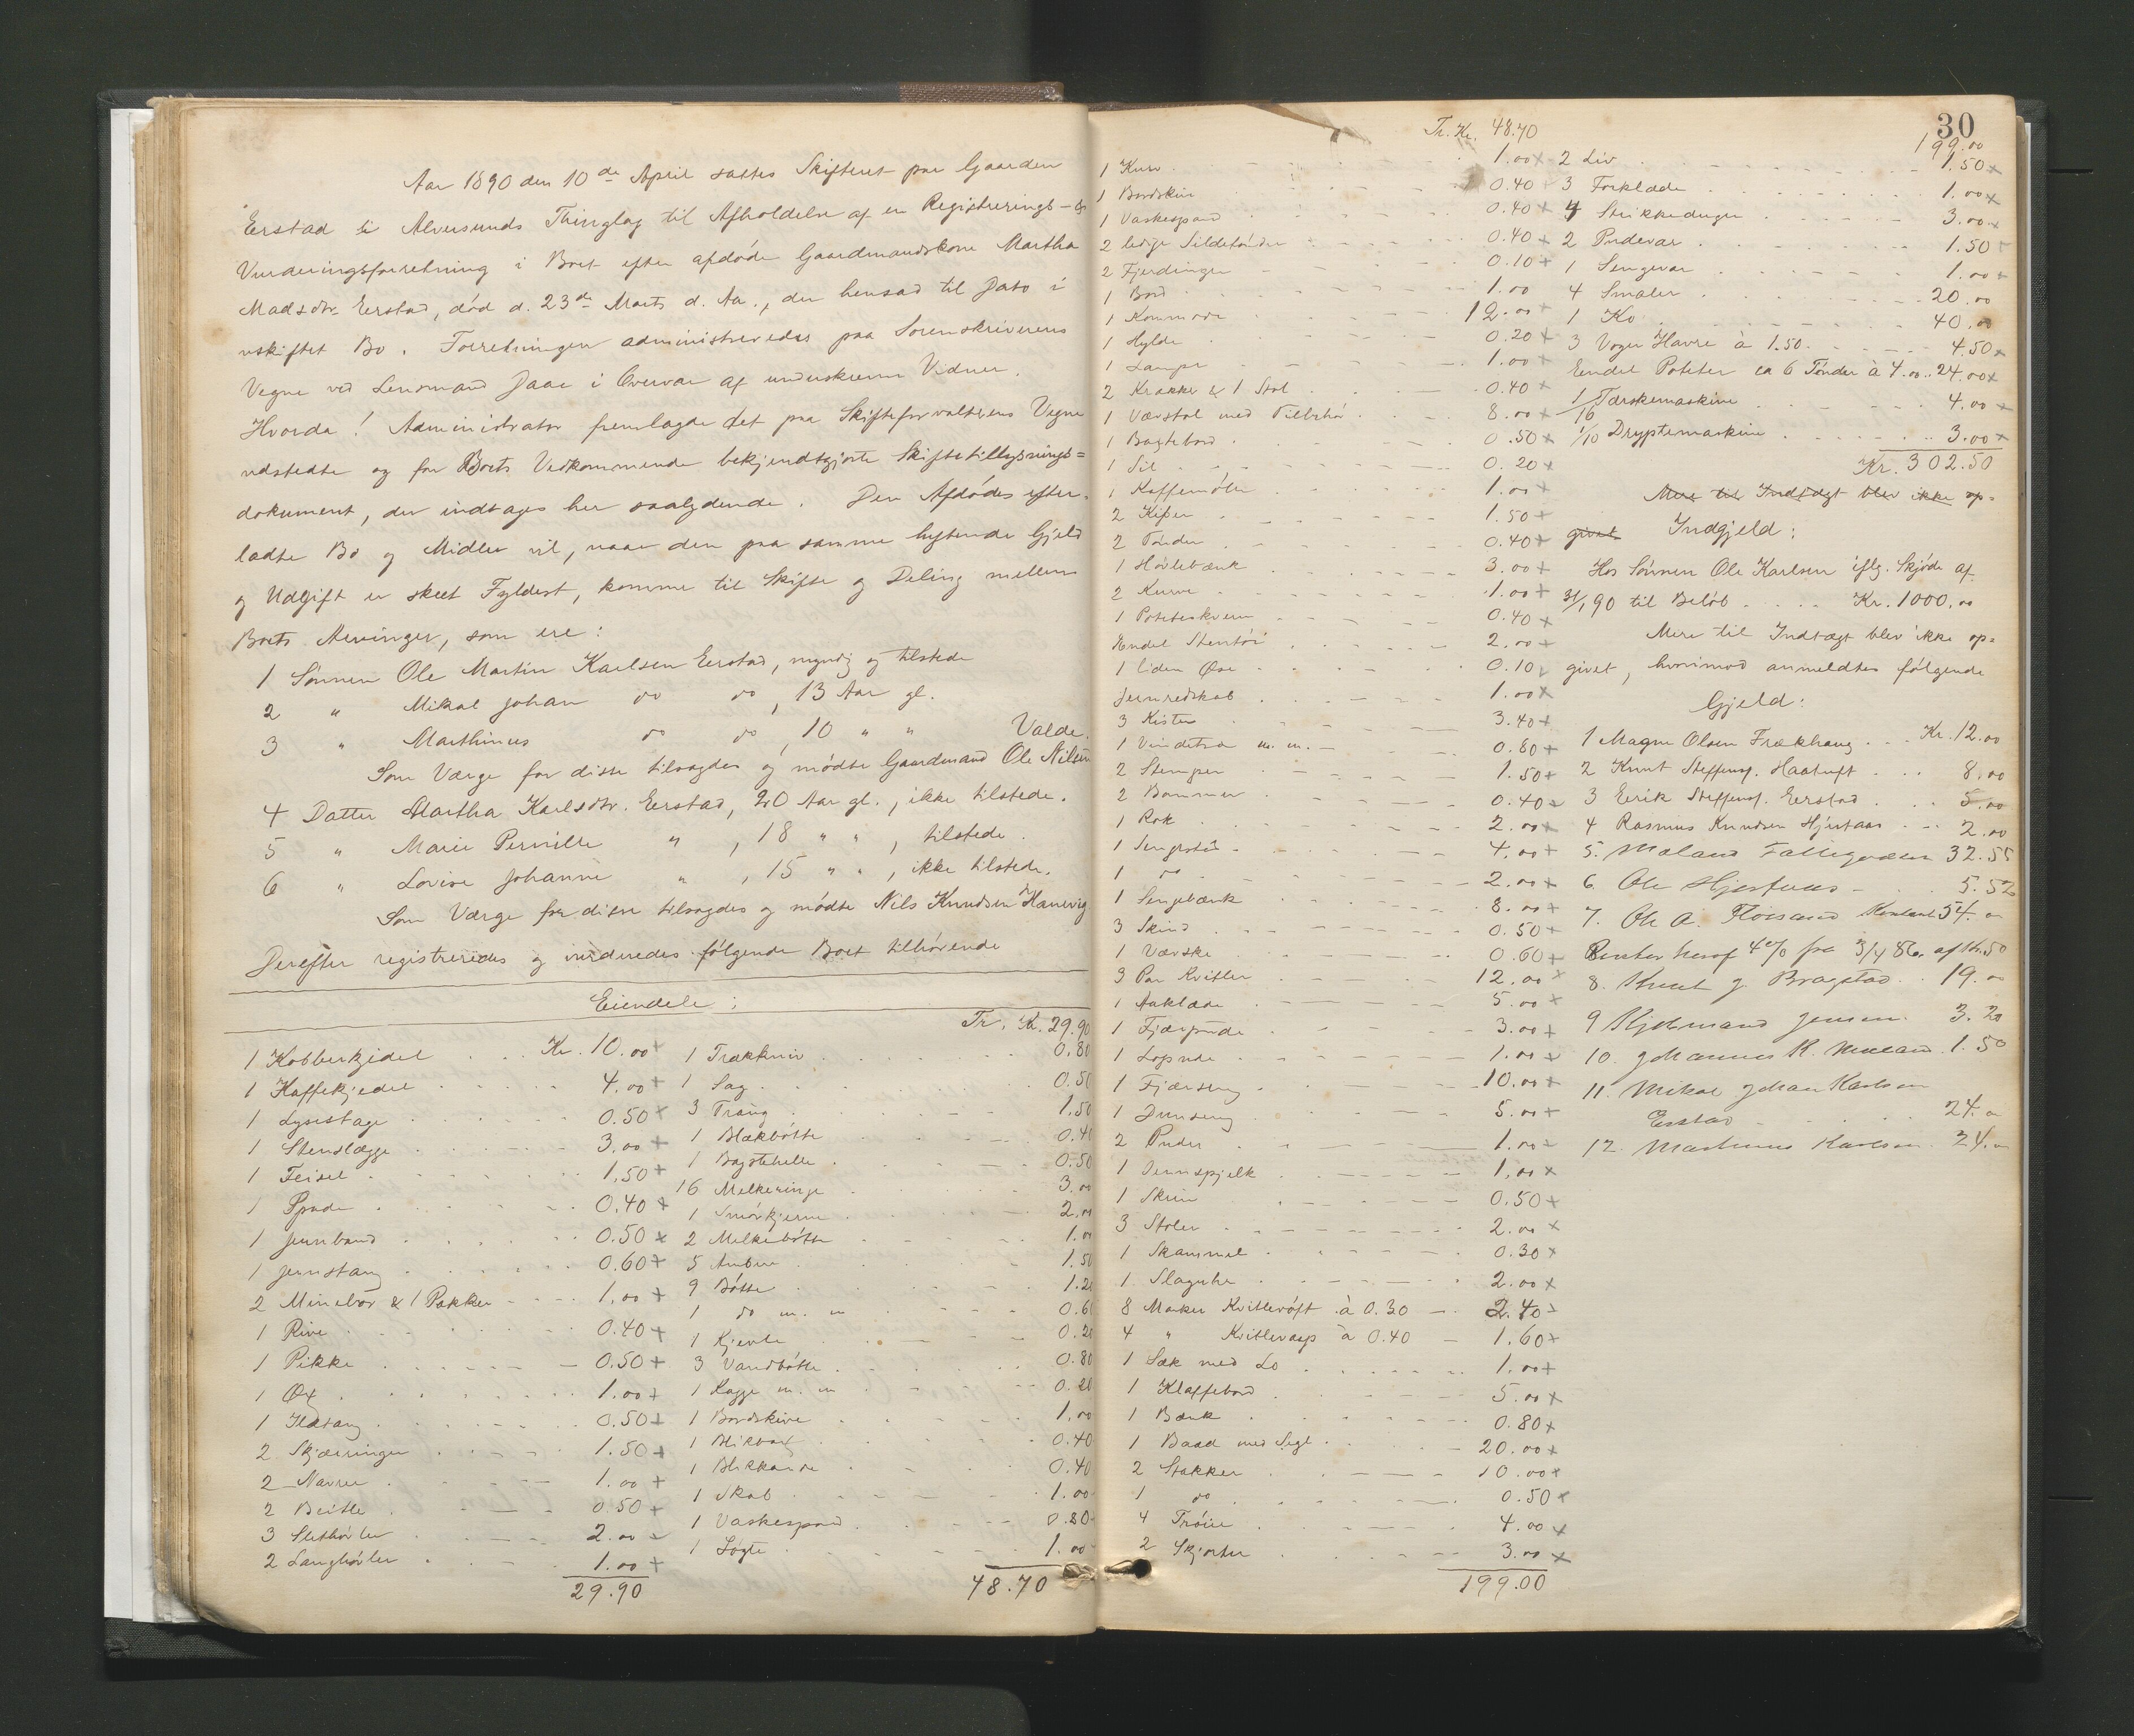 Aar 1890 den 10de April sattes Skifteret paa Gaarden
Eerstad i Alversunds Thinglag til Afholdelse af en Registrerings- &
Vurderingsforretning i Boet efter afdøde Gaardmandskone Martha
Madsdtr. Eerstad, død d. 23de Marts d. Aa., der hensad til Dato i
uskiftet Bo. Forretningen administreredes paa Sorenskriverens
Vegne ved Lensmand Daae i Overvær af underskrevne Vidner.
Hvorda! Administrator fremlagde det paa Skifteforvalterens Vegne
udstedte og for Boets Vedkommende bekjendtgjorte Skiftetillysnings=
dokument, der indtages her saalydende. Den Afdødes efter-
ladte Bo og Midler vil, naar den paa samme heftende Gjeld
og Udgift er skeet Fyldest, komme til Skifte og Deling mellem
Boets Arvinger, som ere:
1 Sønnen Ole Martin Karlsen Eerstad, myndig og tilstede
2 " Mikal Johan do do, 13 Aar gl.
3 " Marthinus do do, 10 " " Valde.
Som Værge for disse tilsagdes og mødte Gaardmand Ole Nilsen
4 Datter Martha Karlsdtr. Eerstad, 20 Aar gl., ikke tilstede.
5 " Marie Pernille " , 18 " " , tilstede.
6 " Lovise Johanne " , 15 " " , ikke tilstede.
Som Værge for disse tilsagdes og mødte Nils Knudsen Hanevig
Derefter registreredes og vurderedes følgende Boet tilhørende
Eiendele:
1 Kobberkjedel Kr. 10.00 +
1 Kaffekjedel 4.00 +
1 Lysestage 0.50 +
1 Stenslægge 3.00 +
1 Feisel 1.50 +
1 Spade 0.40 +
1 Jernband 0.50 +
1 Jernstang 0.60 +
2 Minebor & 1 Pakker 1.00 +
1 Rive 0.40 +
1 Pikke 0.50 +
1 Øx 1.00 +
1 Ildtang 0.50 +
2 Skjæringer 1.50 +
2 Navrer 1.00 +
2 Beitle 0.50 +
3 Slethøvler 2.00
2 Langhøvler 1.00 +
29.90
Tr. Kr. 29.90
1 Trækkniv 0.80
1 Sag 0.50
3 Traug 1.50
1 Blækbøtte 0.40
1 Bagstehelle 0.50
16 Melkeringe 3.00
1 Smørkjerne 2.00
2 Melkebøtte 1.00
5 Ambere 1.50
9 Bøtte 1.20
1 do m. m 0.60
1 Kjenle 0.20
3 Vandbøtte 0.80
1 Kagge m. m 0.20
1 Bordskive 1.00
1 0.40
1 Blikkande 0.40
1 Skab 1.00
1 Vaskespand 0.80
1 Løgte 1.00
48.70
30
Tr. Kr. 48.70
1 Kurv 1.00 +
1 Bordskive 0.40
1 Vaskespand 0.40 +
2 ledige Sildetønder 0.40 +
2 Fjerdinger 0.10 +
1 Bord 1.00
1 Kommode 12.00 +
1 Hylde 0.20 +
1 Lampe 1.00 +
2 Krakker & 1 Stol 0.40 +
1 Vævstol med Tilbehør 8.00 +
1 Bagtebord 0.50 +
1 Sil 0.20 +
1 Kaffemølle 1.00 +
2 Kiper 1.50 +
2 Tønder 0.40 +
1 Høvlebænk 3.00 +
2 Kurve 1.00 +
1 Poteteskvern 0.40 +
Endel Stentøi 2.00 +
1 liden Øse 0.10
Jernredskab 1.00 +
3 Kister 3.40 +
1 Vindetræ m. m. 0.60 +
2 Stemper 1.50 +
2 Bommer 0.40
1 Rok 2.00 +
1 Sengested 4.00 +
1 do 2.00 +
1 Sengebænk 8.00 +
3 Skind 0.50 +
1 Værske 0.60 +
3 Par Kvitler 12.00 +
1 Aaklæde 5.00 +
1 Fjærpude 3.00 +
1 Lopude 1.00
1 Fjærseng 10.00 +
1 Dunseng 5.00 +
2 Puder 1.00
1 Ovnspjelk 1.00 +
1 Skrin 0.50 +
3 Stoler 2.00 +
1 Skammel 0.30 +
1 Slaguhr 2.00 +
8 Marker Kvitlevøft à 0.30 2.40
4 " Kvitlevarp à 0.40 1.60 +
1 Sæk med Lo 1.00 +
1 Klaffebord 5.00 +
1 Bænk 0.80 +
1 Baad med Segl 20.00 +
2 Stakker 10.00 +
1 do 0.50 +
4 Trøie 4.00 +
2 Skjorter 3.00 +
199.00
199.00
2 Liv 1.50 +
3 Forklæde 1.00 +
4 Strikkeduger 3.00 +
2 Pudevar 1.50
1 Sengevar 1.00 +
4 Smaler 20.00
1 Ko 40.00
3 Voger Havre à 1.50. 4.50 +
Endel Poteter ca 6 Tønder à 4.00 24.00 +
1/16 Tærskemaskine 4.00 +
1/10 Dryptemaskine 3.00 +
Kr. 302.50
Mere til Indtægt blev ikke op=
givet Indgjeld:
Hos Sønnen Ole Karlsen iflg. Skjøde af
31/1 90 til Beløb Kr. 1000.00
Mere til Indtægt blev ikke op=
givet, hvorimod anmeldtes følgende
Gjeld:
1 Magne Olsen Frækhaug Kr. 12.00
2 Knut Steffens. Haatuft 8.00
3 Eerik Steffens. Eerstad 5.00
4 Rasmus Knudsen Hjertaas 2.00
5. 32.55
6. Ole Hjertaas 5.52
7. Ole A. Kontant 54.00
Renter heraf 4% fra 3/4 86.
8. Knut J. Bragstad 19.00
9 Jensen 3.20
10. Johannes K. 1.50
11. Mikal Johan Karlsen
Erstad 24.00
12. Martinus Karlsen 24.00